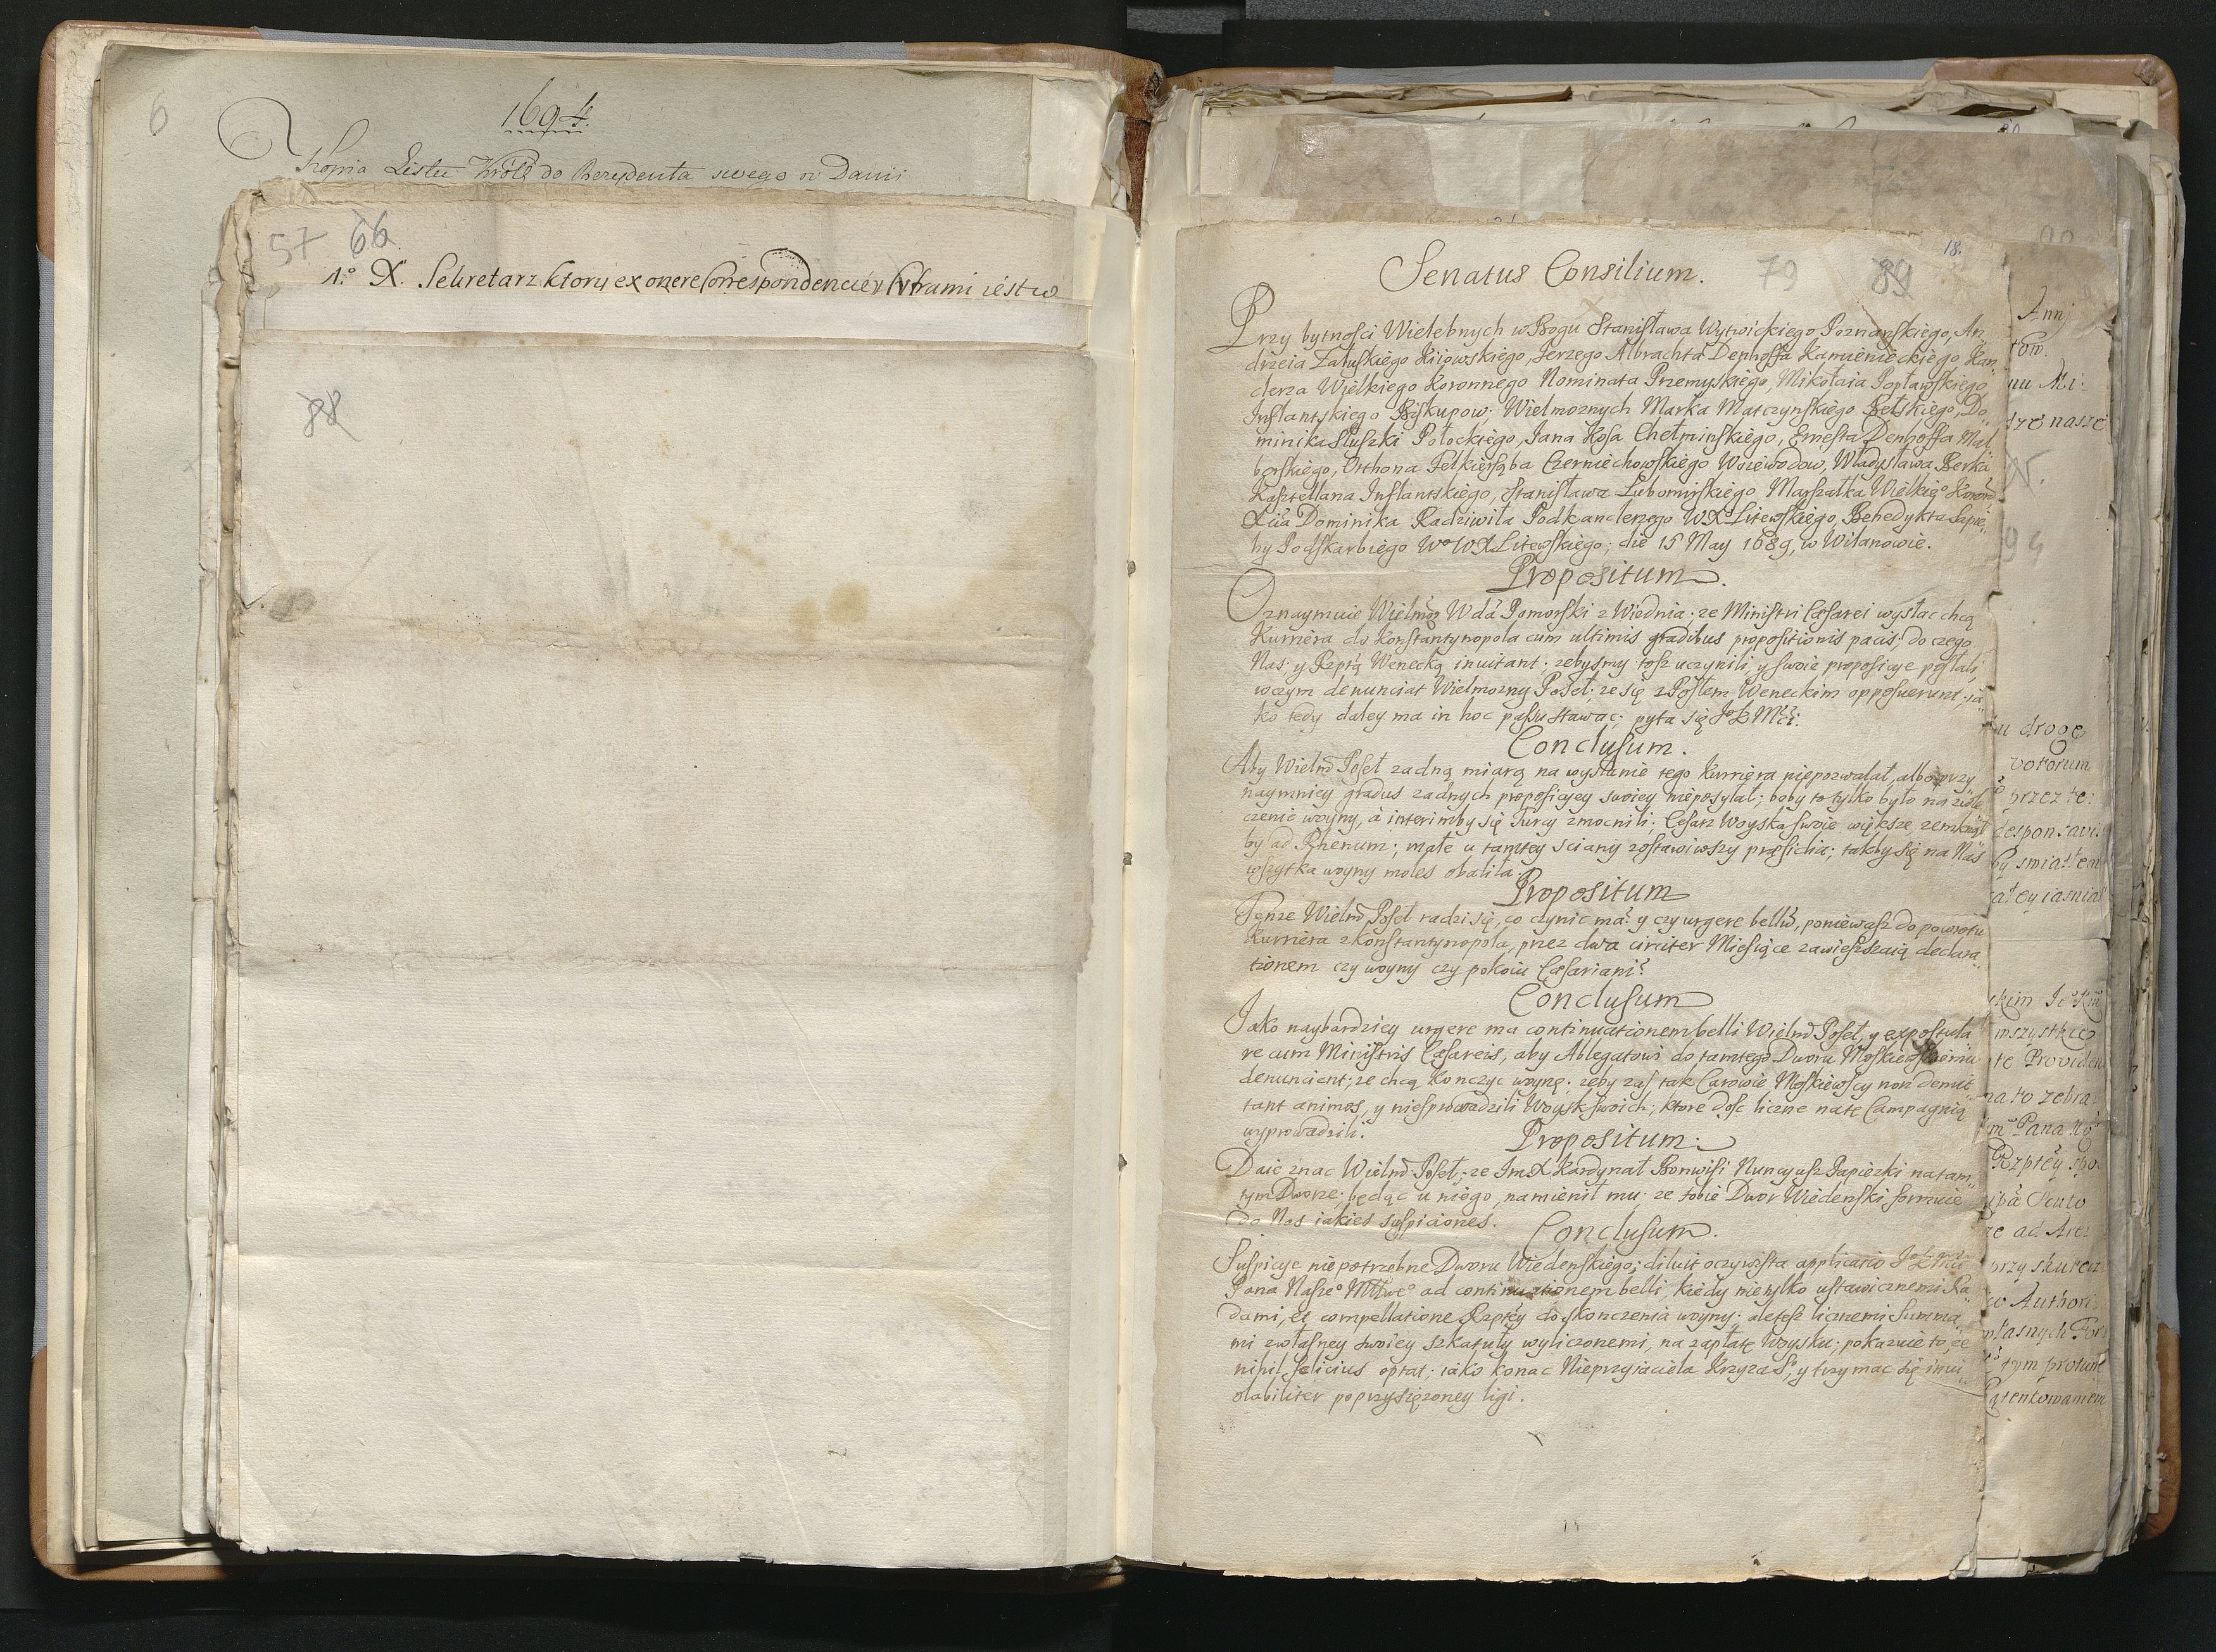 6
1694.
Kopia Listu Króla do Rezydenta swego w Danii
57 66
1.º X. Sekretarz ktory ex onere Correspondenciey Cyframi iest w
88
18.
Senatus Consilium. 79 89
Przy bytnosci Wielebnych w Bogu Stanisława Wytwickiego Poznanskiego, An
drzeia Załuskiego Kiiowskiego, Jerzego Albrachta Denhoffa Kamienieckiego Kan
clerza Wielkiego Koronnego Nominata Przemyskiego, Mikołaia Popławskiego
Inflantskiego Biskupow. Wielmoznych Marka Matczynskiego Bełskiego, Do
minika Słuszki Połockiego, Jana Kosa Chełminskiego, Ernesta Denhoffa Mal
borskiego, Otthona Felkierząba Czerniechowskiego Woiewodow, Władysława Berka
Kasztellana Inflantskiego, Stanisława Lubomirskiego Marszałka Wielkieº Koronº
Xcia Dominika Radziwiła Podkanclerzego WX Litewskiego, Benedykta Sapie
by Podskarbiego Wº WX Litewskiego; die 15 May 1689, w Wilanowie.
Propositum.
Oznaymuie Wielmoz Wda Pomorski z Wiednia; ze Ministri Cæsarei wysłac chcą
Kurriera do Konstantynopola cum ultimis gradibus propositionis pacis; do czego
Nas y Rzptą Wenecką inuitant; zebysmy tosz uczynili, y swoie propozicye posłali,
wczym denunciat Wielmozny Poseł; ze się z Posłem Weneckim opposuerunt; ia
ko tedy daley ma in hoc passu stawac; pyta się JoKMci:
Conclusum.
Aby Wielm Poseł zadną miarą na wysłanie tego Kurriera niepozwalał, albo przy
naymniey gradus zadnych propozicyey swoiey nieposyłał; boby to tylko było na zwle
czenie woyny, á interimby się Turcy zmocnili; Cesarz Woyska swoie większe zemknął
by ad Rhenum; małe u tamtey sciany zostawiwszy præsidia; takby się na Nas
wszytka woyny moles obaliła.
Propositum
Tenze Wielm Poseł radzi się, co czynic ma? y czy urgere bellū, poniewasz do powrotu
Kurriera z Konstantynopola, przez dwa circiter Miesiące zawieszszaią declara
tionem czy woyny czy pokoiu Cæsariani?
Conclusum
Jako naybardziey urgere ma continuationem belli Wielm Poseł, y expostula
re cum Ministris Cæsareis, aby Ablegatowi do tamtego Dworu Moskiewskiemu
denuncient; ze chcą konczyc woynę; zeby zas tak Carowie Moskiewscy non demit
tant animos, y niesprowadzili Woysk swoich; ktore dosc liczne na tę Campagnią
wyprowadzili.
Propositum.
Daie znac Wielm Poseł; ze ImX Kardynał Bonwisi Nuncyusz Papiezki na tam
tym Dworze; będąc u niego, namienił mu; ze sobie Dwor Wiedenski formuie
do Nas iakies suspiciones.
Conclusum.
Suspicye niepotrzebne Dworu Wiedenskiego; diluit oczywista applicatio JoKMci
Pana Naszeº Młłweº ad continuationem belli, kiedy nietylko ustawicznemi Ra
dami, et compellatione Rzptey do skonczenia woyny; ale tesz licznemi Summa
mi z własney swoiey szkatuły wyliczonemi, na zapłatę Woysku; pokazuie to, ze
nihil felicius optat; iako konac Nieprzyiaciela Krzyza S; y trzymac się invi
olabiliter poprzysięzoney ligi.
Annj
tow.
nu Mi:
drze nasze
94
u drogę
votorum
przez te:
desponsavit
by swiatłem
wszystkieº
te Providen
na to zebra
Pana Nº
Rzptey spo
ad Are:
przy skutecz
Authori
własnych For
tym protunc